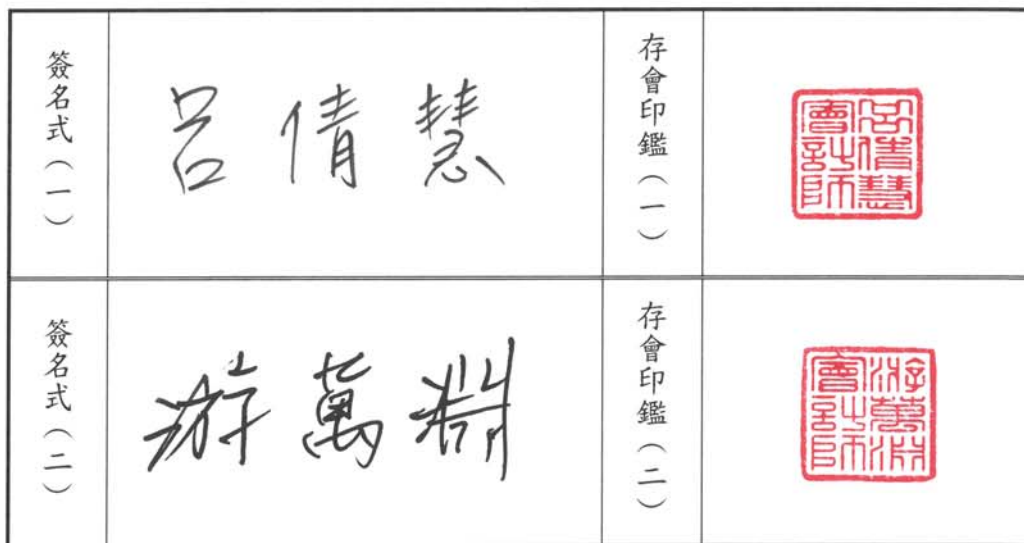 簽名式（一）
呂倩慧
存會印鑑（一）
呂倩慧會計師
簽名式（二）
游萬淵
存會印鑑（二）
游萬淵會計師